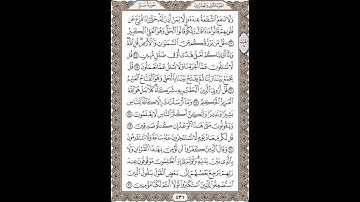 الجزء الثاني والعشرون سورة سبإ
وَلَا تَنفَعُ ٱلشَّفَٰعَةُ عِندَهُۥٓ إِلَّا لِمَنۡ أَذِنَ لَهُۥۚ حَتَّىٰٓ إِذَا فُزِّعَ عَن
قُلُوبِهِمۡ قَالُواْ مَاذَا قَالَ رَبُّكُمۡۖ قَالُواْ ٱلۡحَقَّۖ وَهُوَ ٱلۡعَلِيُّ ٱلۡكَبِيرُ
٢٣ ۞ قُلۡ مَن يَرۡزُقُكُم مِّنَ ٱلسَّمَٰوَٰتِ وَٱلۡأَرۡضِۖ قُلِ ٱللَّهُۖ
وَإِنَّآ أَوۡ إِيَّاكُمۡ لَعَلَىٰ هُدًى أَوۡ فِي ضَلَٰلٖ مُّبِينٖ ٢٤ قُل
لَّا تُسۡـَٔلُونَ عَمَّآ أَجۡرَمۡنَا وَلَا نُسۡـَٔلُ عَمَّا تَعۡمَلُونَ ٢٥ قُلۡ
يَجۡمَعُ بَيۡنَنَا رَبُّنَا ثُمَّ يَفۡتَحُ بَيۡنَنَا بِٱلۡحَقِّ وَهُوَ ٱلۡفَتَّاحُ ٱلۡعَلِيمُ
٢٦ قُلۡ أَرُونِيَ ٱلَّذِينَ أَلۡحَقۡتُم بِهِۦ شُرَكَآءَۖ كَلَّاۚ بَلۡ هُوَ ٱللَّهُ
ٱلۡعَزِيزُ ٱلۡحَكِيمُ ٢٧ وَمَآ أَرۡسَلۡنَٰكَ إِلَّا كَآفَّةٗ لِّلنَّاسِ
بَشِيرٗا وَنَذِيرٗا وَلَٰكِنَّ أَكۡثَرَ ٱلنَّاسِ لَا يَعۡلَمُونَ ٢٨
وَيَقُولُونَ مَتَىٰ هَٰذَا ٱلۡوَعۡدُ إِن كُنتُمۡ صَٰدِقِينَ ٢٩
قُل لَّكُم مِّيعَادُ يَوۡمٖ لَّا تَسۡتَـٔۡخِرُونَ عَنۡهُ سَاعَةٗ وَلَا تَسۡتَقۡدِمُونَ
٣٠ وَقَالَ ٱلَّذِينَ كَفَرُواْ لَن نُّؤۡمِنَ بِهَٰذَا ٱلۡقُرۡءَانِ وَلَا
بِٱلَّذِي بَيۡنَ يَدَيۡهِۗ وَلَوۡ تَرَىٰٓ إِذِ ٱلظَّٰلِمُونَ مَوۡقُوفُونَ عِندَ
رَبِّهِمۡ يَرۡجِعُ بَعۡضُهُمۡ إِلَىٰ بَعۡضٍ ٱلۡقَوۡلَ يَقُولُ ٱلَّذِينَ
ٱسۡتُضۡعِفُواْ لِلَّذِينَ ٱسۡتَكۡبَرُواْ لَوۡلَآ أَنتُمۡ لَكُنَّا مُؤۡمِنِينَ ٣١
٤٣١